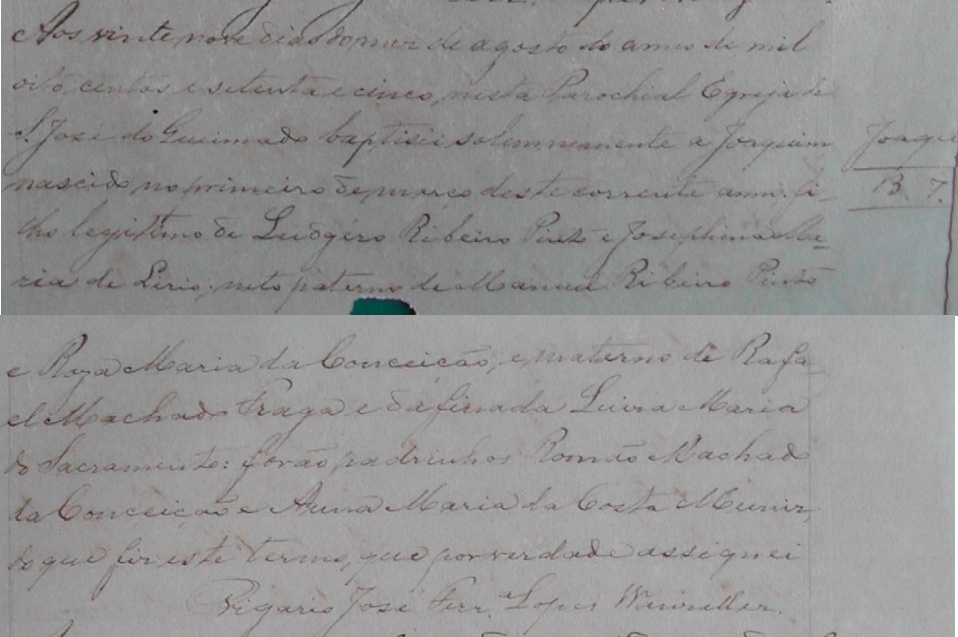 Aos vinte nove dias do mez de agosto do anno de mil
oito centos e setenta e cinco, nesta Parochial Egreja de
S. José do Queimado baptisei solemnemente a Joaquim
Joaqui
B. 7.
nascido no primeiro de março deste corrente anno, fi-
lho legitimo de Ludgéro Ribeiro Pinto e Josephina Ma-
ria de Lirio, neto paterno de Manoel Ribeiro Pinto
e Roza Maria da Conceicão, e materno de Rafa
el Machado Fraga e da finada Luiza Maria
do Sacramento: forão padrinhos Romão Machado
da Conceicão e Anna Maria da Costa Muniz,
do que fiz este termo, que por verdade assignei
Vigario José Ferr. Lopes